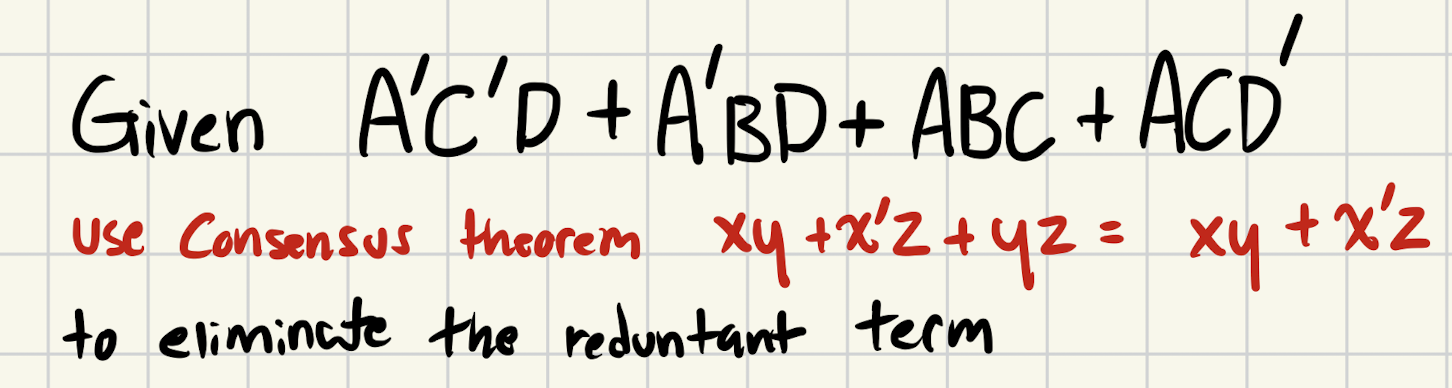 Given A'C'D + A'BD + ABC + ACD'
use Consensus theorem xy + x'z + yz = xy + x'z
to eliminate the reduntant term